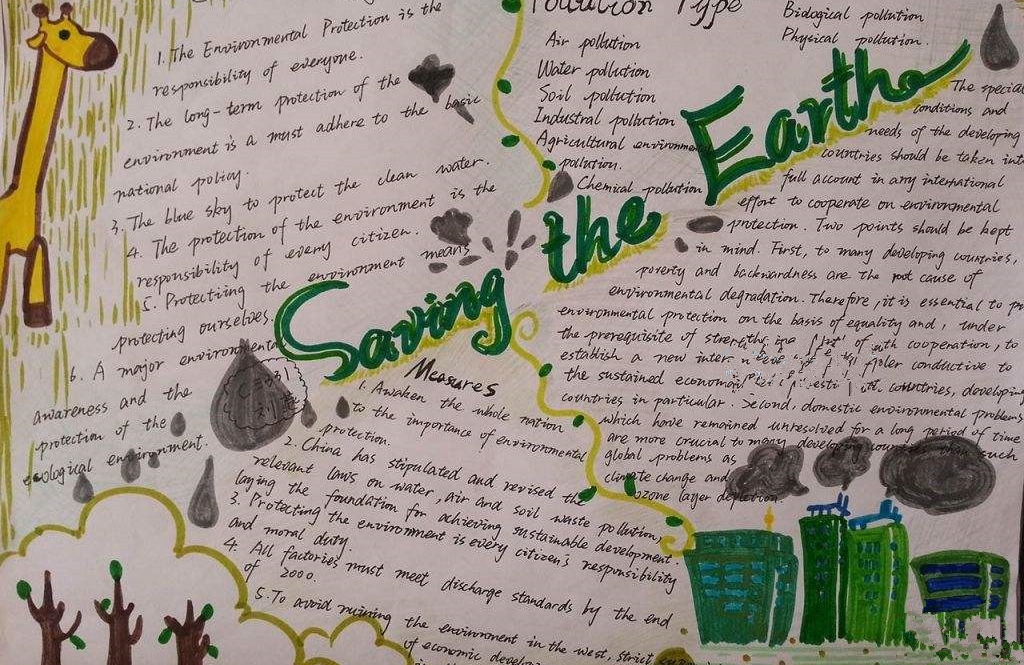 1. The Environmental Protection is the
responsibility of everyone.
2. The long-term protection of the
environment is a must adhere to the basic
national policy.
3. The blue sky to protect the clean water.
4. The protection of the environment is the
responsibility of every citizen.
5. Protectiing the environment means
protecting ourselves.
6. A major environmental
awareness and the
protection of the
ecological environment.
Pollution Type
Air pollution
Water pollution
Soil pollution
Industral pollution
Agricultural environmental
pollution.
Chemical pollution
Biological pollution
Physical pollution.
Saving the Earth
The special
conditions and
needs of the developing
countries should be taken into
full account in any international
effort to cooperate on environmental
protection. Two points should be kept
in mind. First, to many developing countries,
poverty and backwardness are the root cause of
environmental degradation. Therefore, it is essential to
environmental protection on the basis of equality and, under
the prerequisite of with cooperation, to
establish a new conducive to
the sustained countries, developing
countries in particular. Second, domestic environmental problems
which have remained unresolved for a long period of time
are more crucial to many developing countries than such
global problems as
climate change and
ozone layer depletion.
Measures
1. Awaken the whole nation
to the importance of environmental
protection.
2. China has stipulated and revised the
relevant laws on water, air and soil waste pollution,
laying the foundation for achieving sustainable development.
3. Protecting the environment is every citizen's responsibility
and moral duty.
4. All factories must meet discharge standards by the end
of 2000.
5. To avoid ruining the environment in the west, strict
of economic